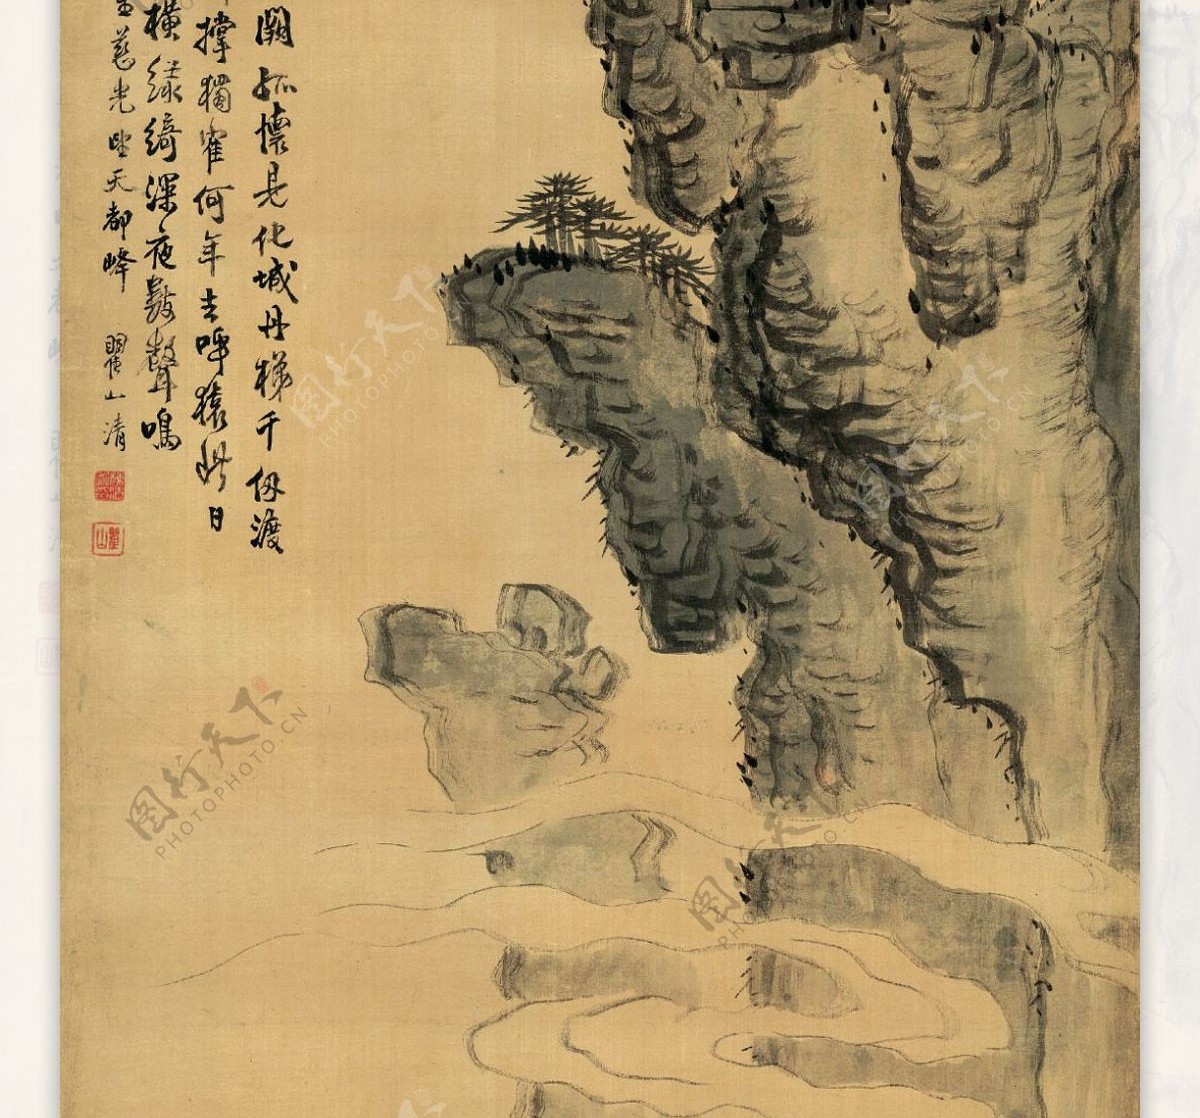 闕孤懷是化城丹梯千仞渡
撐獨寉何年去呼猿此日
橫綠綺深夜數聲鳴
慈光望天都峰 瞿山清
瞿山
图行天下
PHOTOPHOTO.CN
图行天下
PHOTOPHOTO.CN
图行天下
PHOTOPHOTO.CN
图行天下
PHOTOPHOTO.CN